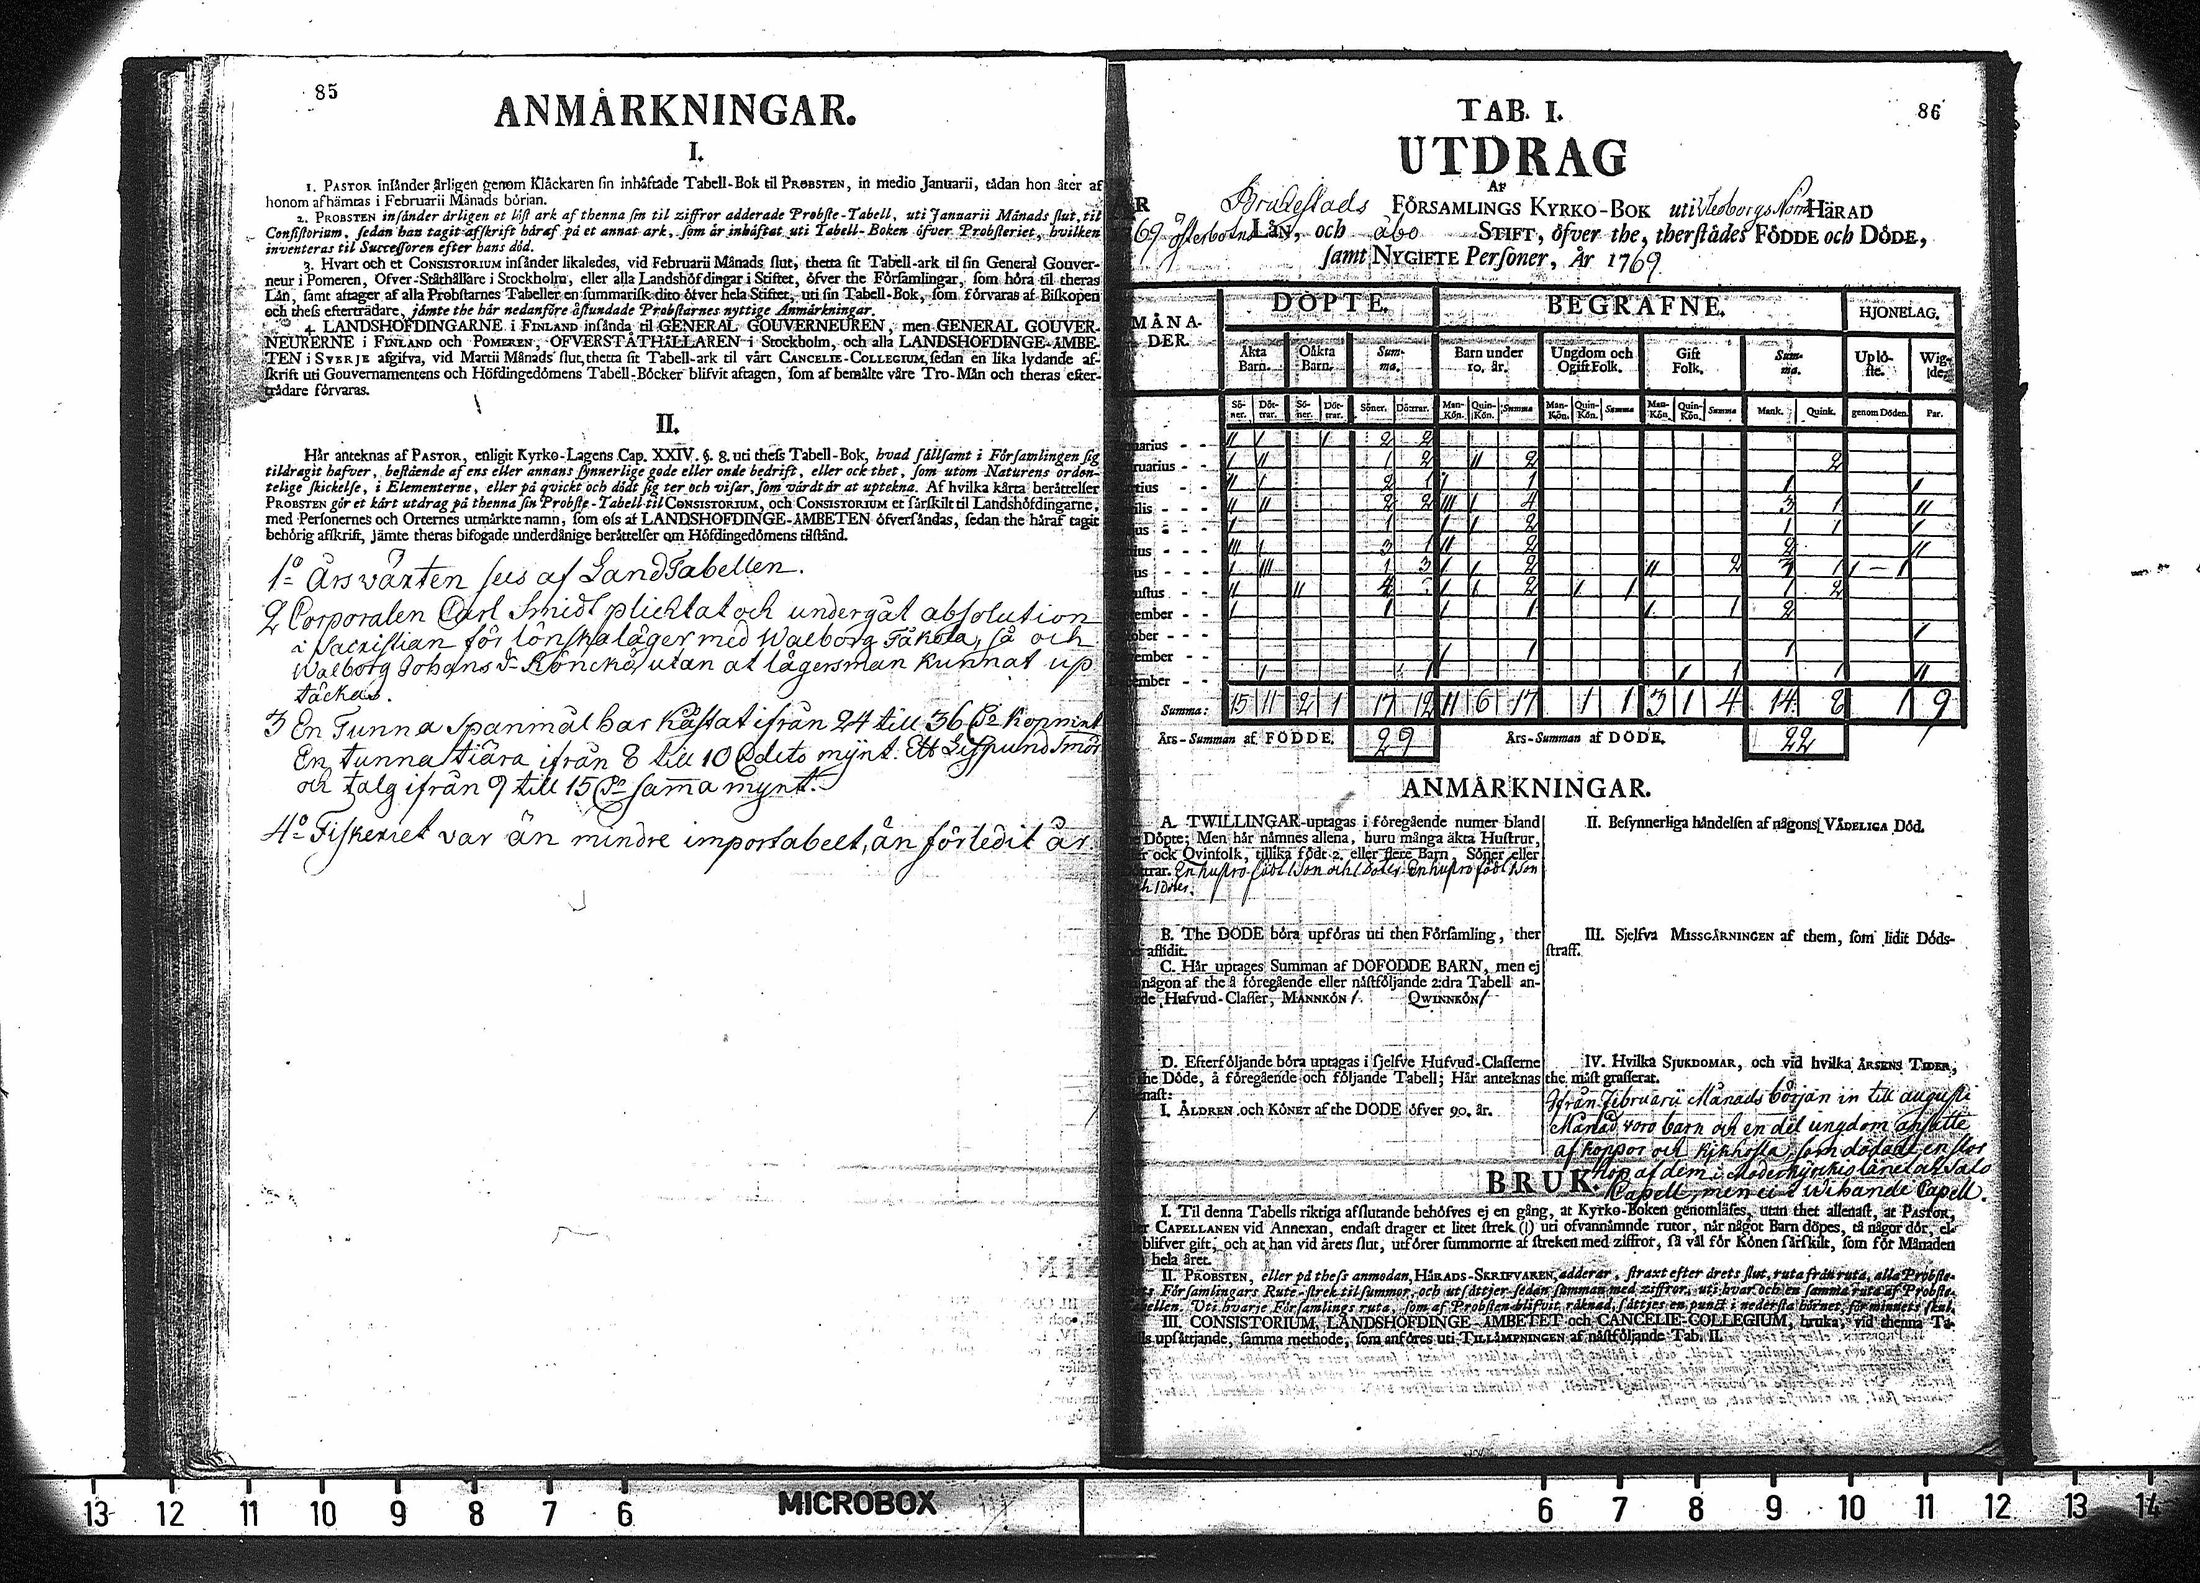 85
ANMÅRKNINGAR.
I.
1. PASTOR insånder årligen genom Klåckaren sin inhåftade Tabell-Bok til PROBSTEN, in medio Januarii, tådan hon åter af
honom afhämtas i Februarii Månads början.
2. PROBSTEN insånder årligen et löst ark af thenna sin til ziffror adderade Probste-Tabell, uti Januarii Månads slut, til
Consistorium, sedan han tagit afskrift håraf på et annat ark, som år inhåftat uti Tabell-Boken öfver Probsteriet, hvilken
inventeras til Successoren efter hans död.
3. Hvart och et CONSISTORIUM insånder likaledes, vid Februarii Månads slut, thetta sit Tabell-ark til sin General Gouver-
neur i Pomeren, Ofver-Ståthållare i Stockholm, eller alla Landshöfdingar i Stiftet, öfver the Församlingar, som höra til theras
Lån, samt aftager af alla Probstarnes Tabeller en summarisk dito öfver hela Stiftet, uti sin Tabell-Bok, som förvaras af Biskopen
och thess efterträdare, jåmte the hår nedanföre åstundade Probstarnes nyttige Anmårkningar.
4. LANDSHOFDINGARNE i FINLAND insånda til GENERAL GOUVERNEUREN, men GENERAL GOUVER-
NEURERNE i FINLAND och POMEREN, OFVERSTÅTHÅLLAREN i Stockholm, och alla LANDSHOFDINGE-ÅMBE-
TEN i SVERJE afgifva, vid Martii Månads slut, thetta sit Tabell-ark til vårt CANCELIE-COLLEGIUM, sedan en lika lydande af-
skrift uti Gouvernamentens och Höfdingedömens Tabell-Böcker blifvit aftagen, som af bemålte våre Tro-Mån och theras efter-
trådare förvaras.
II.
Hår anteknas af PASTOR, enligit Kyrko-Lagens Cap. XXIV. §. 8. uti thess Tabell-Bok, hvad sållsamt i Församlingen sig
tildragit hafver, bestående af ens eller annans synnerlige gode eller onde bedrift, eller ock thet, som utom Naturens orden-
telige skickelse, i Elementerne, eller på qvickt och dödt sig ter och visar, som vårdt år at uptekna. Af hvilka kårta beråttelser
PROBSTEN gör et kårt utdrag på thenna sin Probste-Tabell til CONSISTORIUM, och CONSISTORIUM et sårskilt til Landshöfdingarne,
med Personernes och Orternes utmårkte namn, som oss af LANDSHOFDINGE-ÅMBETEN öfversåndas, sedan the håraf tagit
behörig afskrift, jåmte theras bifogade underdånige beråttelser om Höfdingedömens tilstånd.
1o Årsväxten sees af Land Tabellen.
2 Corporalen Carl Smidt plicktat och undergåt absolution
i Sacristian för lönskaläger med Walborg, så och
Walborg Johans dr utan at lägersman kunnat up
täckas.
3 En Tunna Spanmål har kåstat ifrån 24 till 36 Dr kopmynt
En tunna tiära ifrån 8 till 10 D dito mynt. Ett Lispund Smör
och talg ifrån 9 till 15 Dr samma mynt.
4o Fiskeriet var än mindre importabelt, än förledit år.
TAB. I.
86
UTDRAG
AF
Brahestads FÖRSAMLINGS KYRKO-BOK uti Uleoborgs Norra HÄRAD
69 Österbotns LÅN, och Åbo STIFT, öfver the, therstådes FÖDDE och DÖDE,
samt NYGIFTE Personer, År 1769
MÅNA-
DER.
DÖPTE. BEGRAFNE. HJONELAG.
Äkta Barn. Oåkta Barn. Sum-ma. Barn under 10. år. Ungdom och Ogift Folk. Gift Folk. Sum-ma. Uplö-ste. Wig-de.
Sö-ner. Döt-trar. Sö-ner. Döt-trar. Söner. Döttrar. Man-Kön. Quin-Kön. Summa Man-Kön. Quin-Kön. Summa Man-Kön. Quin-Kön. Summa Mank. Quink. genom Döden. Par.
Summa: 15 11 2 1 17 12 11 6 17 1 1 3 1 4 14 8 1 9
Års-Summan af FÖDDE. 29 Års-Summan af DÖDE. 22
ANMÅRKNINGAR.
A. TWILLINGAR uptagas i föregående numer bland
Döpte; Men hår nåmnes allena, huru många åkta Hustrur,
ock Qvinfolk, tillika födt 2. eller flere Barn, Söner eller
trar. En hustro födt 1 Son och 1 Doter. En hustro födt 1 Son
och 1 Doter.
B. The DÖDE böra upföras uti then Församling, ther
aflidit.
C. Hår uptages Summan af DÖFÖDDE BARN, men ej
någon af the å föregående eller nåstföljande 2:dra Tabell an-
Hufvud-Classer, MANNKÖN 1. QWINNKÖN 1
D. Efterföljande böra uptagas i sjelfve Hufvud-Classerne
the Döde, å föregående och följande Tabell; Hår anteknas
nast:
I. ÅLDREN och KÖNET af the DÖDE öfver 90. år.
II. Besynnerliga håndelsen af någons VÅDELIGA Död.
III. Sjelfva MISSGÅRNINGEN af them, som lidit Döds-
straff.
IV. Hvilka SJUKDOMAR, och vid hvilka ÅRSENS TIDER,
the måst grasserat.
Ifrån Februarii Månads början in till augusti
Månad voro barn och en del ungdom ansatte
af koppor och kikhosta, som dödade en stor
hop af dem i Moderkyrkiolänet och Salo
Capell, men ei i Wihande Capell.
BRUK.
I. Til denna Tabells riktiga afslutande behöfves ej en gång, at Kyrko-Boken genomläses, utan thet allenast, at PASTOR,
CAPELLANEN vid Annexan, endast drager et litet strek (|) uti ofvannåmnde rutor, når något Barn döpes, tå någor dör, el-
blifver gift, och at han vid årets slut, utförer summorne af streken med ziffror, så vål för Könen sårskilt, som för Månaden
hela året.
II. PROBSTEN, eller på thess anmodan, HÄRADS-SKRIFVAREN, adderar, straxt efter årets slut, ruta från ruta, alla Probste-
Församlingars Rute-strek til summor, och utsåttjer sedan summan med ziffror, uti hvar och en samma ruta af Probste-
bellen. Uti hvarje Församlings ruta, som af Probsten blifvit råknad, såttjes en punct i nedersta hörnet, för minnets skul.
III. CONSISTORIUM, LANDSHOFDINGE-ÅMBETET och CANCELIE-COLLEGIUM, bruka, vid thenna Ta-
upsåttjande, samma methode, som anföres uti TILLÅMPNINGEN af nåstföljande Tab. II.
13 12 11 10 9 8 7 6 MICROBOX 6 7 8 9 10 11 12 13 14